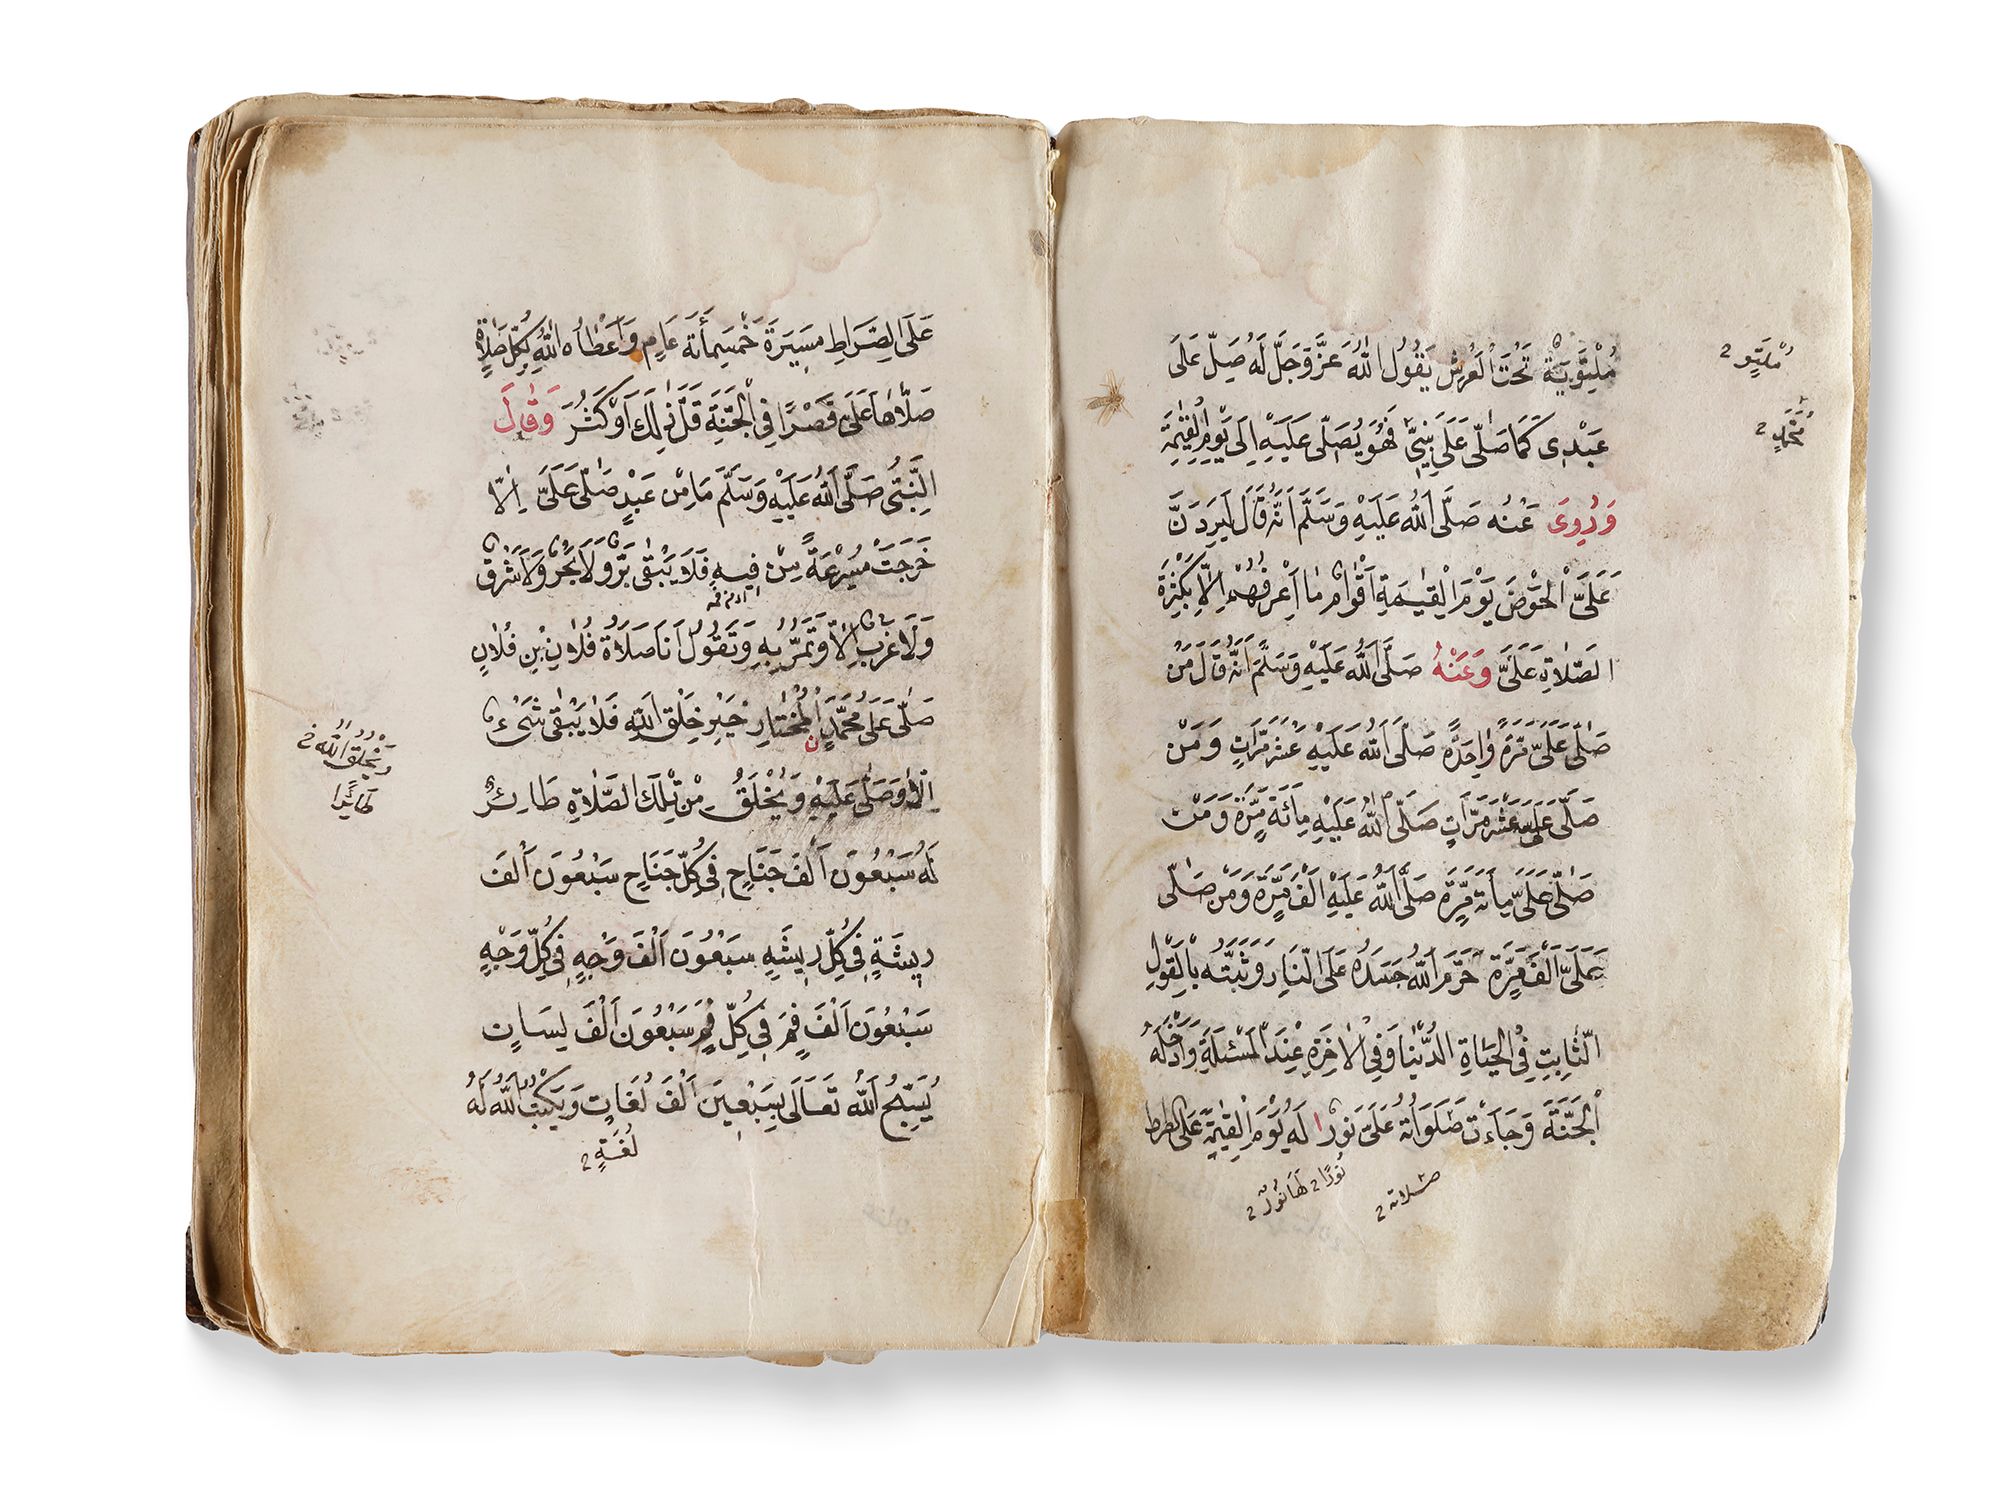 مُلْتَوِيَةٌ تَحْتَ الْعَرْشِ يَقُولُ اللّٰهُ عَزَّ وَجَلَّ لَهُ صَلِّ عَلَى
عَبْدِى كَمَا صَلّٰى عَلَى نَبِيِّ فَهُوَ يُصَلِّى عَلَيْهِ اِلَى يَوْمِ الْقِيٰمَةِ
وَرُوِىَ عَنْهُ صَلَّى اللّٰهُ عَلَيْهِ وَسَلَّمَ اَنَّهُ قَالَ لَيَرِدَنَّ
عَلَىَّ الْحَوْضَ يَوْمَ الْقِيٰمَةِ اَقْوَامٌ مَا اَعْرِفُهُمْ اِلَّا بِكَثْرَةِ
الصَّلَاةِ عَلَىَّ وَعَنْهُ صَلَّى اللّٰهُ عَلَيْهِ وَسَلَّمَ اَنَّهُ قَالَ مَنْ
صَلّٰى عَلَىَّ مَرَّةً وَاحِدَةً صَلَّى اللّٰهُ عَلَيْهِ عَشْرَ مَرَّاتٍ وَمَنْ
صَلّٰى عَلَىَّ عَشْرَ مَرَّاتٍ صَلَّى اللّٰهُ عَلَيْهِ مِائَةَ مَرَّةٍ وَمَنْ
صَلّٰى عَلَىَّ مِأَتَه مَرَّةٍ صَلَّى اللّٰهُ عَلَيْهِ اَلْفَ مَرَّةٍ وَمَنْ صَلّٰى
عَلَىَّ اَلْفَ مَرَّةٍ حَرَّمَ اللّٰهُ جَسَدَهُ عَلَى النَّارِ وَثَبَّتَهُ بِالْقَوْلِ
الثَّابِتِ فِي الْحَيَاةِ الدُّنْيَا وَفِي الْاٰخِرَةِ عِنْدَ الْمَسْئَلَةِ وَاَدْخَلَهُ
الْجَنَّةَ وَجَاءَتْ صَلَوَاتُهُ عَلَىَّ نُورٌا لَهُ يَوْمَ الْقِيٰمَةِ عَلَى الصِّرَاطِ
نُورًا 2 لَهَا نُورٌ 2
صلاته 2
مُحَمَّدٍ 2
عَلَى الصِّرَاطِ مَسِيرَةَ خَمْسِمِأَتِه عَامٍ وَاَعْطَاهُ اللّٰهُ بِكُلِّ صَلَاةٍ
صَلَّاهَا عَلَىَّ قَصْرًا فِي الْجَنَّةِ قَلَّ ذٰلِكَ اَوْ كَثُرَ وَقَالَ
النَّبِيُّ صَلَّى اللّٰهُ عَلَيْهِ وَسَلَّمَ مَا مِنْ عَبْدٍ صَلّٰى عَلَىَّ اِلَّا
خَرَجَتْ مُسْرِعَةً مِنْ فِيهِ فَلَا يَبْقٰى بَرٌّ وَلَا بَحْرٌ وَلَا شَرْقٌ
وَلَا غَرْبٌ اِلَّا وَتَمُرُّ بِهِ وَتَقُولُ اَنَا صَلَاةُ فُلَانِ بْنِ فُلَانٍ
صَلّٰى عَلَى مُحَمَّدٍ الْمُخْتَارِ خَيْرِ خَلْقِ اللّٰهِ فَلَا يَبْقٰى شَيْءٌ
اِلَّا وَصَلّٰى عَلَيْهِ وَيُخْلَقُ مِنْ تِلْكَ الصَّلَاةِ طَائِرٌ
لَهُ سَبْعُونَ اَلْفَ جَنَاحٍ فِي كُلِّ جَنَاحٍ سَبْعُونَ اَلْفَ
رِيشَةٍ فِي كُلِّ رِيشَةٍ سَبْعُونَ اَلْفَ وَجْهٍ فِي كُلِّ وَجْهٍ
سَبْعُونَ اَلْفَ فَمٍ فِي كُلِّ فَمٍ سَبْعُونَ اَلْفَ لِسَانٍ
يُسَبِّحُ اللّٰهَ تَعَالَى بِسَبْعِينَ اَلْفَ لُغَاتٍ وَيَكْتُبُ اللّٰهُ لَهُ
لُغَةٍ 2
وَيَخْلُقُ اللّٰهُ خ
طَائِرًا